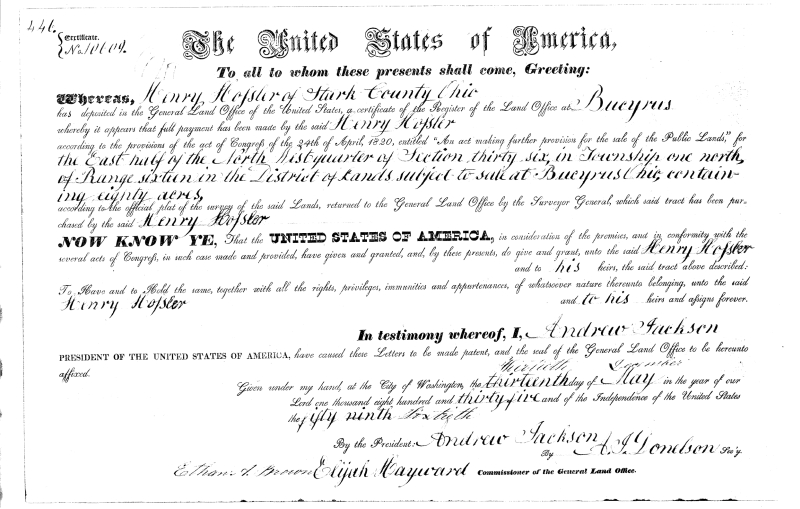 446.
Certificate.
No. 10609.
The United States of America,
To all to whom these presents shall come, Greeting:
Whereas, Henry Hoſsler of Stark County Ohio
has deposited in the General Land Office of the United States, a certificate of the Register of the Land Office at Bucyrus
whereby it appears that full payment has been made by the said Henry Hoſsler
according to the provisions of the act of Congreſs of the 24th of April, 1820, entitled "An act making further provision for the sale of the Public Lands," for
the East half of the North West quarter of Section thirty six, in Township one north,
of Range sixteen in the District of Lands subject to sale at Bucyrus Ohio, contain-
ing eighty acres,
according to the official plat of the survey of the said Lands, returned to the General Land Office by the Surveyor General, which said tract has been pur-
chased by the said Henry Hoſsler
NOW KNOW YE, That the UNITED STATES OF AMERICA, in consideration of the premises, and in conformity with the
several acts of Congreſs, in such case made and provided, have given and granted, and, by these presents, do give and grant, unto the said Henry Hoſsler
and to his heirs, the said tract above described:
To Have and to Hold the same, together with all the rights, privileges, immunities and appurtenances, of whatsoever nature thereunto belonging, unto the said
Henry Hoſsler and to his heirs and aſsigns forever.
In testimony whereof, I, Andrew Jackson
PRESIDENT OF THE UNITED STATES OF AMERICA, have caused these Letters to be made patent, and the seal of the General Land Office to be hereunto
affixed.
Thirtieth December
Given under my hand, at the City of Washington, the thirteenth day of May in the year of our
Lord one thousand eight hundred and thirty five and of the Independence of the United States
the fifty ninth Sixtieth
By the President: Andrew Jackson
By A. J. Donelson Sec'y.
Ethan A. Brown Elijah Hayward Commissioner of the General Land Office.